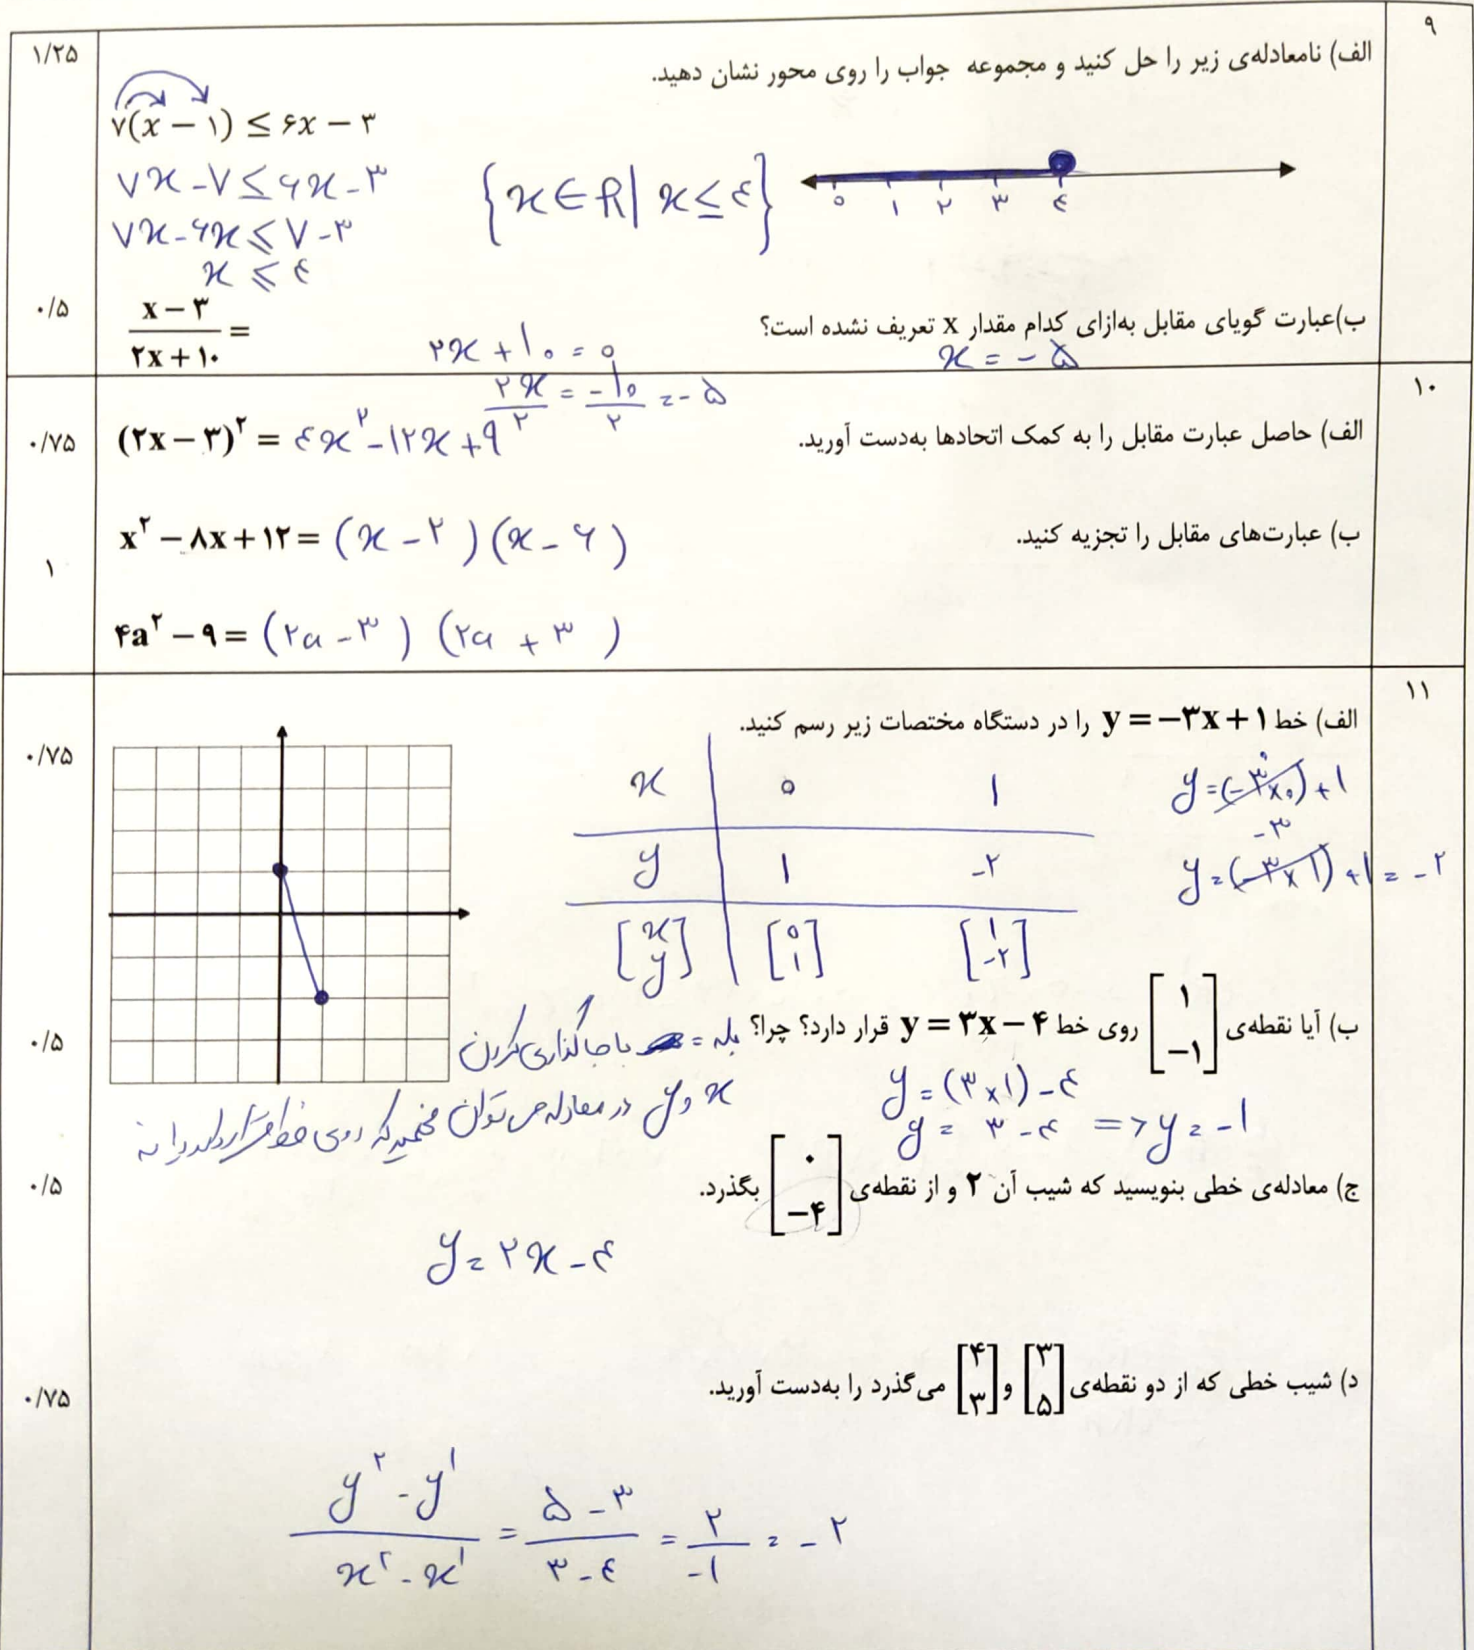 ۹
الف) نامعادله‌ی زیر را حل کنید و مجموعه جواب را روی محور نشان دهید.
۱/۲۵
۷(x − ۱) ≤ ۶x − ۳
۷x − ۷ ≤ ۶x − ۳
۷x − ۶x ≤ ۷ − ۳
x ≤ ۴
{x ∈ R | x ≤ ۴}
۰ ۱ ۲ ۳ ۴
ب)عبارت گویای مقابل به‌ازای کدام مقدار x تعریف نشده است؟
۰/۵
(x − ۳)/(۲x + ۱۰) =
۲x + ۱۰ = ۰
۲x/۲ = −۱۰/۲ = −۵
x = −۵
۱۰
الف) حاصل عبارت مقابل را به کمک اتحادها به‌دست آورید.
۰/۷۵
(۲x − ۳)^۲ = ۴x^۲ − ۱۲x + ۹
ب) عبارت‌های مقابل را تجزیه کنید.
۱
x^۲ − ۸x + ۱۲ = (x − ۲)(x − ۶)
۴a^۲ − ۹ = (۲a − ۳)(۲a + ۳)
۱۱
الف) خط y = −۳x + ۱ را در دستگاه مختصات زیر رسم کنید.
۰/۷۵
x ۰ ۱
y ۱ −۲
[x y] [۰ ۱] [۱ −۲]
۰
y = (−۳×۰) + ۱
−۳
y = (−۳×۱) + ۱ = −۲
ب) آیا نقطه‌ی [۱ −۱] روی خط y = ۳x − ۴ قرار دارد؟ چرا؟ بله = با جاگذاری کردن
x و y در معادله می توان فهمید که روی خط قرار دارد یا نه
۰/۵
y = (۳×۱) − ۴
y = ۳ − ۴ => y = −۱
ج) معادله‌ی خطی بنویسید که شیب آن ۲ و از نقطه‌ی [۰ −۴] بگذرد.
۰/۵
y = ۲x − ۴
د) شیب خطی که از دو نقطه‌ی [۳ ۵] و [۴ ۳] می‌گذرد را به‌دست آورید.
۰/۷۵
(y^۲ − y^۱)/(x^۲ − x^۱) = (۵ − ۳)/(۳ − ۴) = ۲/−۱ = −۲